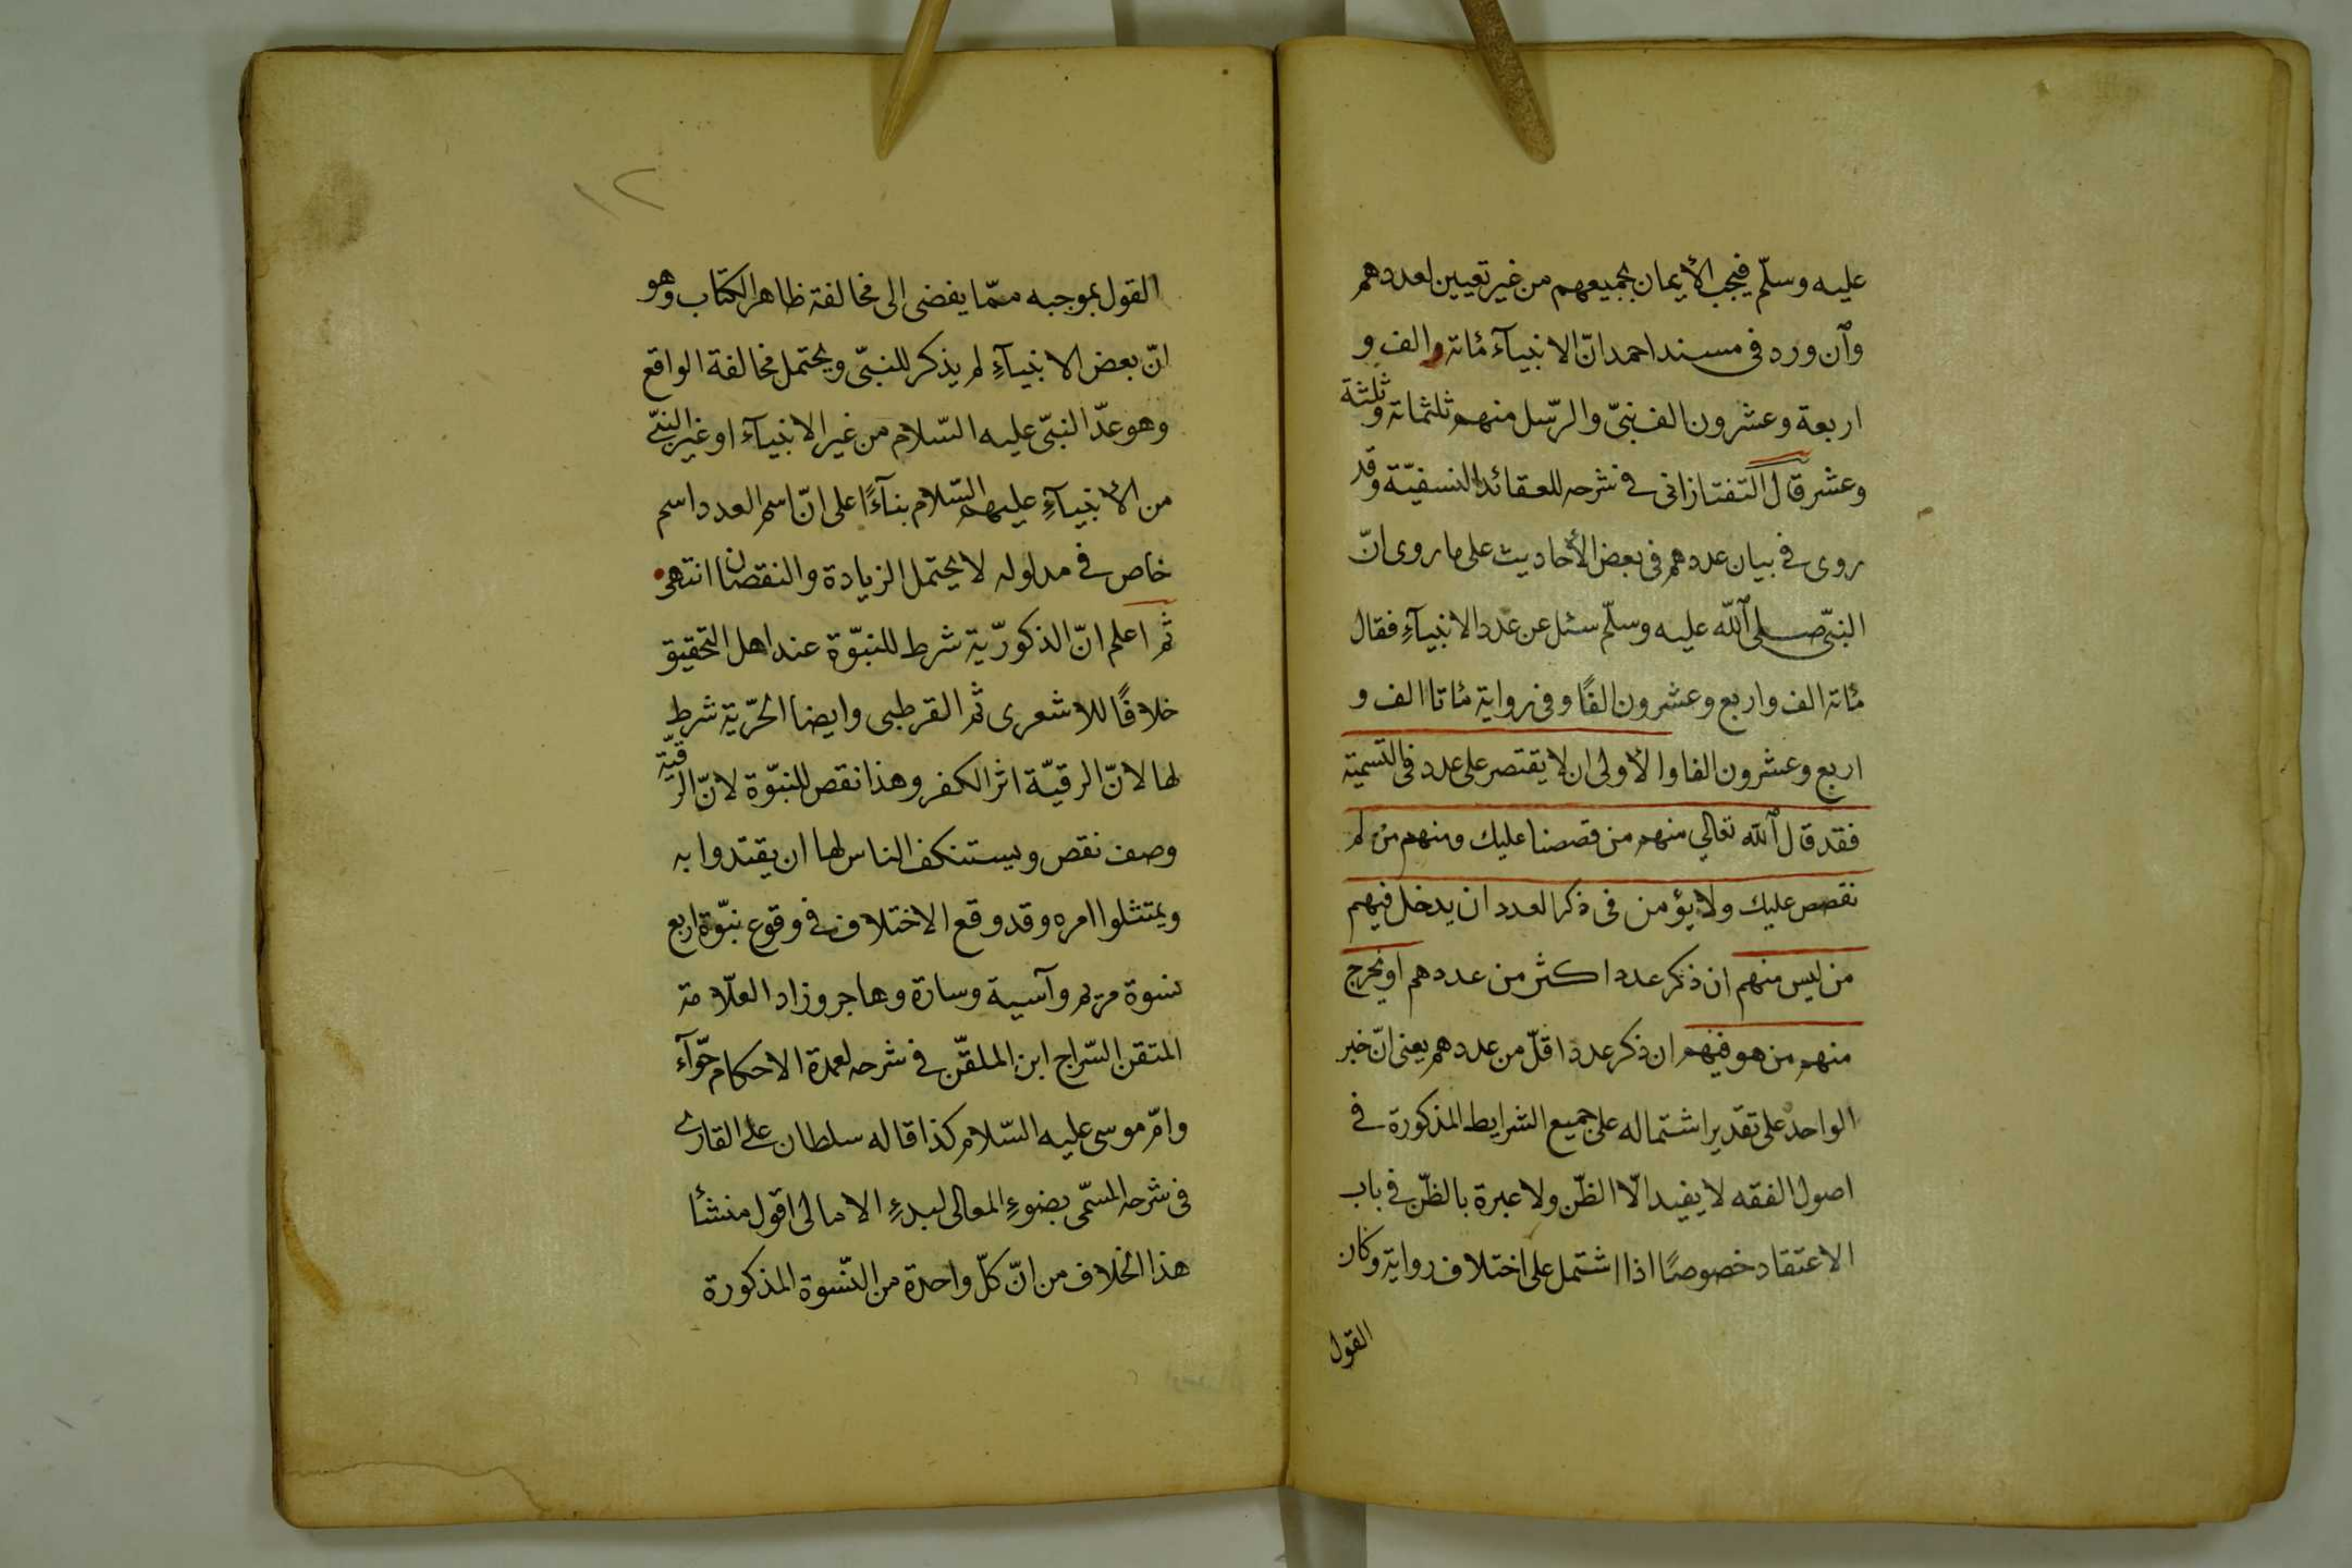 عليه وسلّم فيجب الأيمان بجميعهم من غير تعيين لعددهم
وأن ورد فى مسند احمد انّ الانبيآء مائة والف و
اربعة وعشرون الف نبىّ والرّسل منهم ثلثمائة وثلثة
وعشر قال التفتازانى فى شرحه للعقائد النسفيّة وقد
روى فى بيان عددهم فى بعض الأحاديث على ما روى انّ
النبىّ صلى الله عليه وسلّم سئل عن عدد الانبيآءِ فقال
مائة الف واربع وعشرون الفًا وفى رواية مائتا الف و
اربع وعشرون الفا والأولى ان لا يقتصر على عدد فى التسمية
فقد قال الله تعالى منهم من قصصنا عليك ومنهم من لم
نقصص عليك ولا يؤمن فى ذكر العدد ان يدخل فيهم
من ليس منهم ان ذكر عدد اكثر من عددهم او يخرج
منهم من هو فيهم ان ذكر عدد اقلّ من عددهم يعنى انّ خبر
الواحد على تقدير اشتماله على جميع الشرايط المذكورة فى
اصول الفقه لا يفيد الّا الظّن ولا عبرة بالظّن فى باب
الاعتقاد خصوصًا اذا اشتمل على اختلاف رواية وكان
القول
١٢
القول بموجبه ممّا يفضى الى مخالفة ظاهر الكتاب وهو
انّ بعض الانبيآءِ لم يذكر للنبىّ ويحتمل مخالفة الواقع
وهو عدّ النبىّ عليه السّلام من غير الانبيآء او غير النبىّ
من الأنبيآءِ عليهم السّلام بنآءً على انّ اسم العدد اسم
خاص فى مدلوله لا يحتمل الزيادة والنقصان انتهى
ثم اعلم انّ الذكوريّة شرط للنبوّة عند اهل التحقيق
خلافًا للاشعرى ثم القرطبى وايضا الحرّية شرط
لها لانّ الرقيّة اثر الكفر وهذا نقص للنبوّة لانّ الرقيّة
وصف نقص ويستنكف الناس لها ان يقتدوا به
ويمتثلوا امره وقد وقع الاختلاف فى وقوع نبوّة اربع
نسوة مريم وآسية وسارة وهاجر وزاد العلّامة
المتقن السّراج ابن الملقّن فى شرحه لعمدة الاحكام حوّآء
وامّ موسى عليه السّلام كذا قاله سلطان على القارى
فى شرحه المسمّى بضوءِ المعالى لبدءِ الامالى اقول منشأ
هذا الخلاف من انّ كلّ واحدة من النّسوة المذكورة